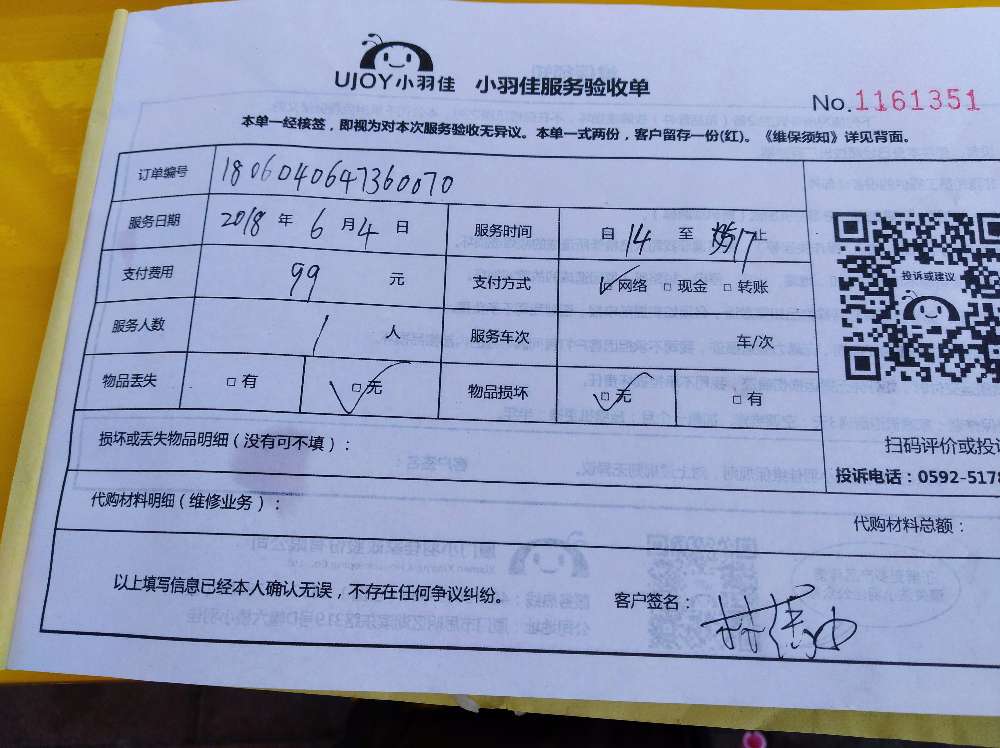 UJOY小羽佳 小羽佳服务验收单
No.1161351
本单一经核签，即视为对本次服务验收无异议。本单一式两份，客户留存一份(红)。《维保须知》详见背面。
订单编号 1806040647360070
服务日期 2018 年 6 月 4 日 服务时间 自 14 至 17 止
支付费用 99 元 支付方式 ☑网络 □现金 □转账
投诉或建议
服务人数 1 人 服务车次 车/次
物品丢失 □有 ☑无 物品损坏 ☑无 □有
损坏或丢失物品明细（没有可不填）：
扫码评价或投诉
投诉电话：0592-5178
代购材料明细（维修业务）：
代购材料总额：
以上填写信息已经本人确认无误，不存在任何争议纠纷。
客户签名：